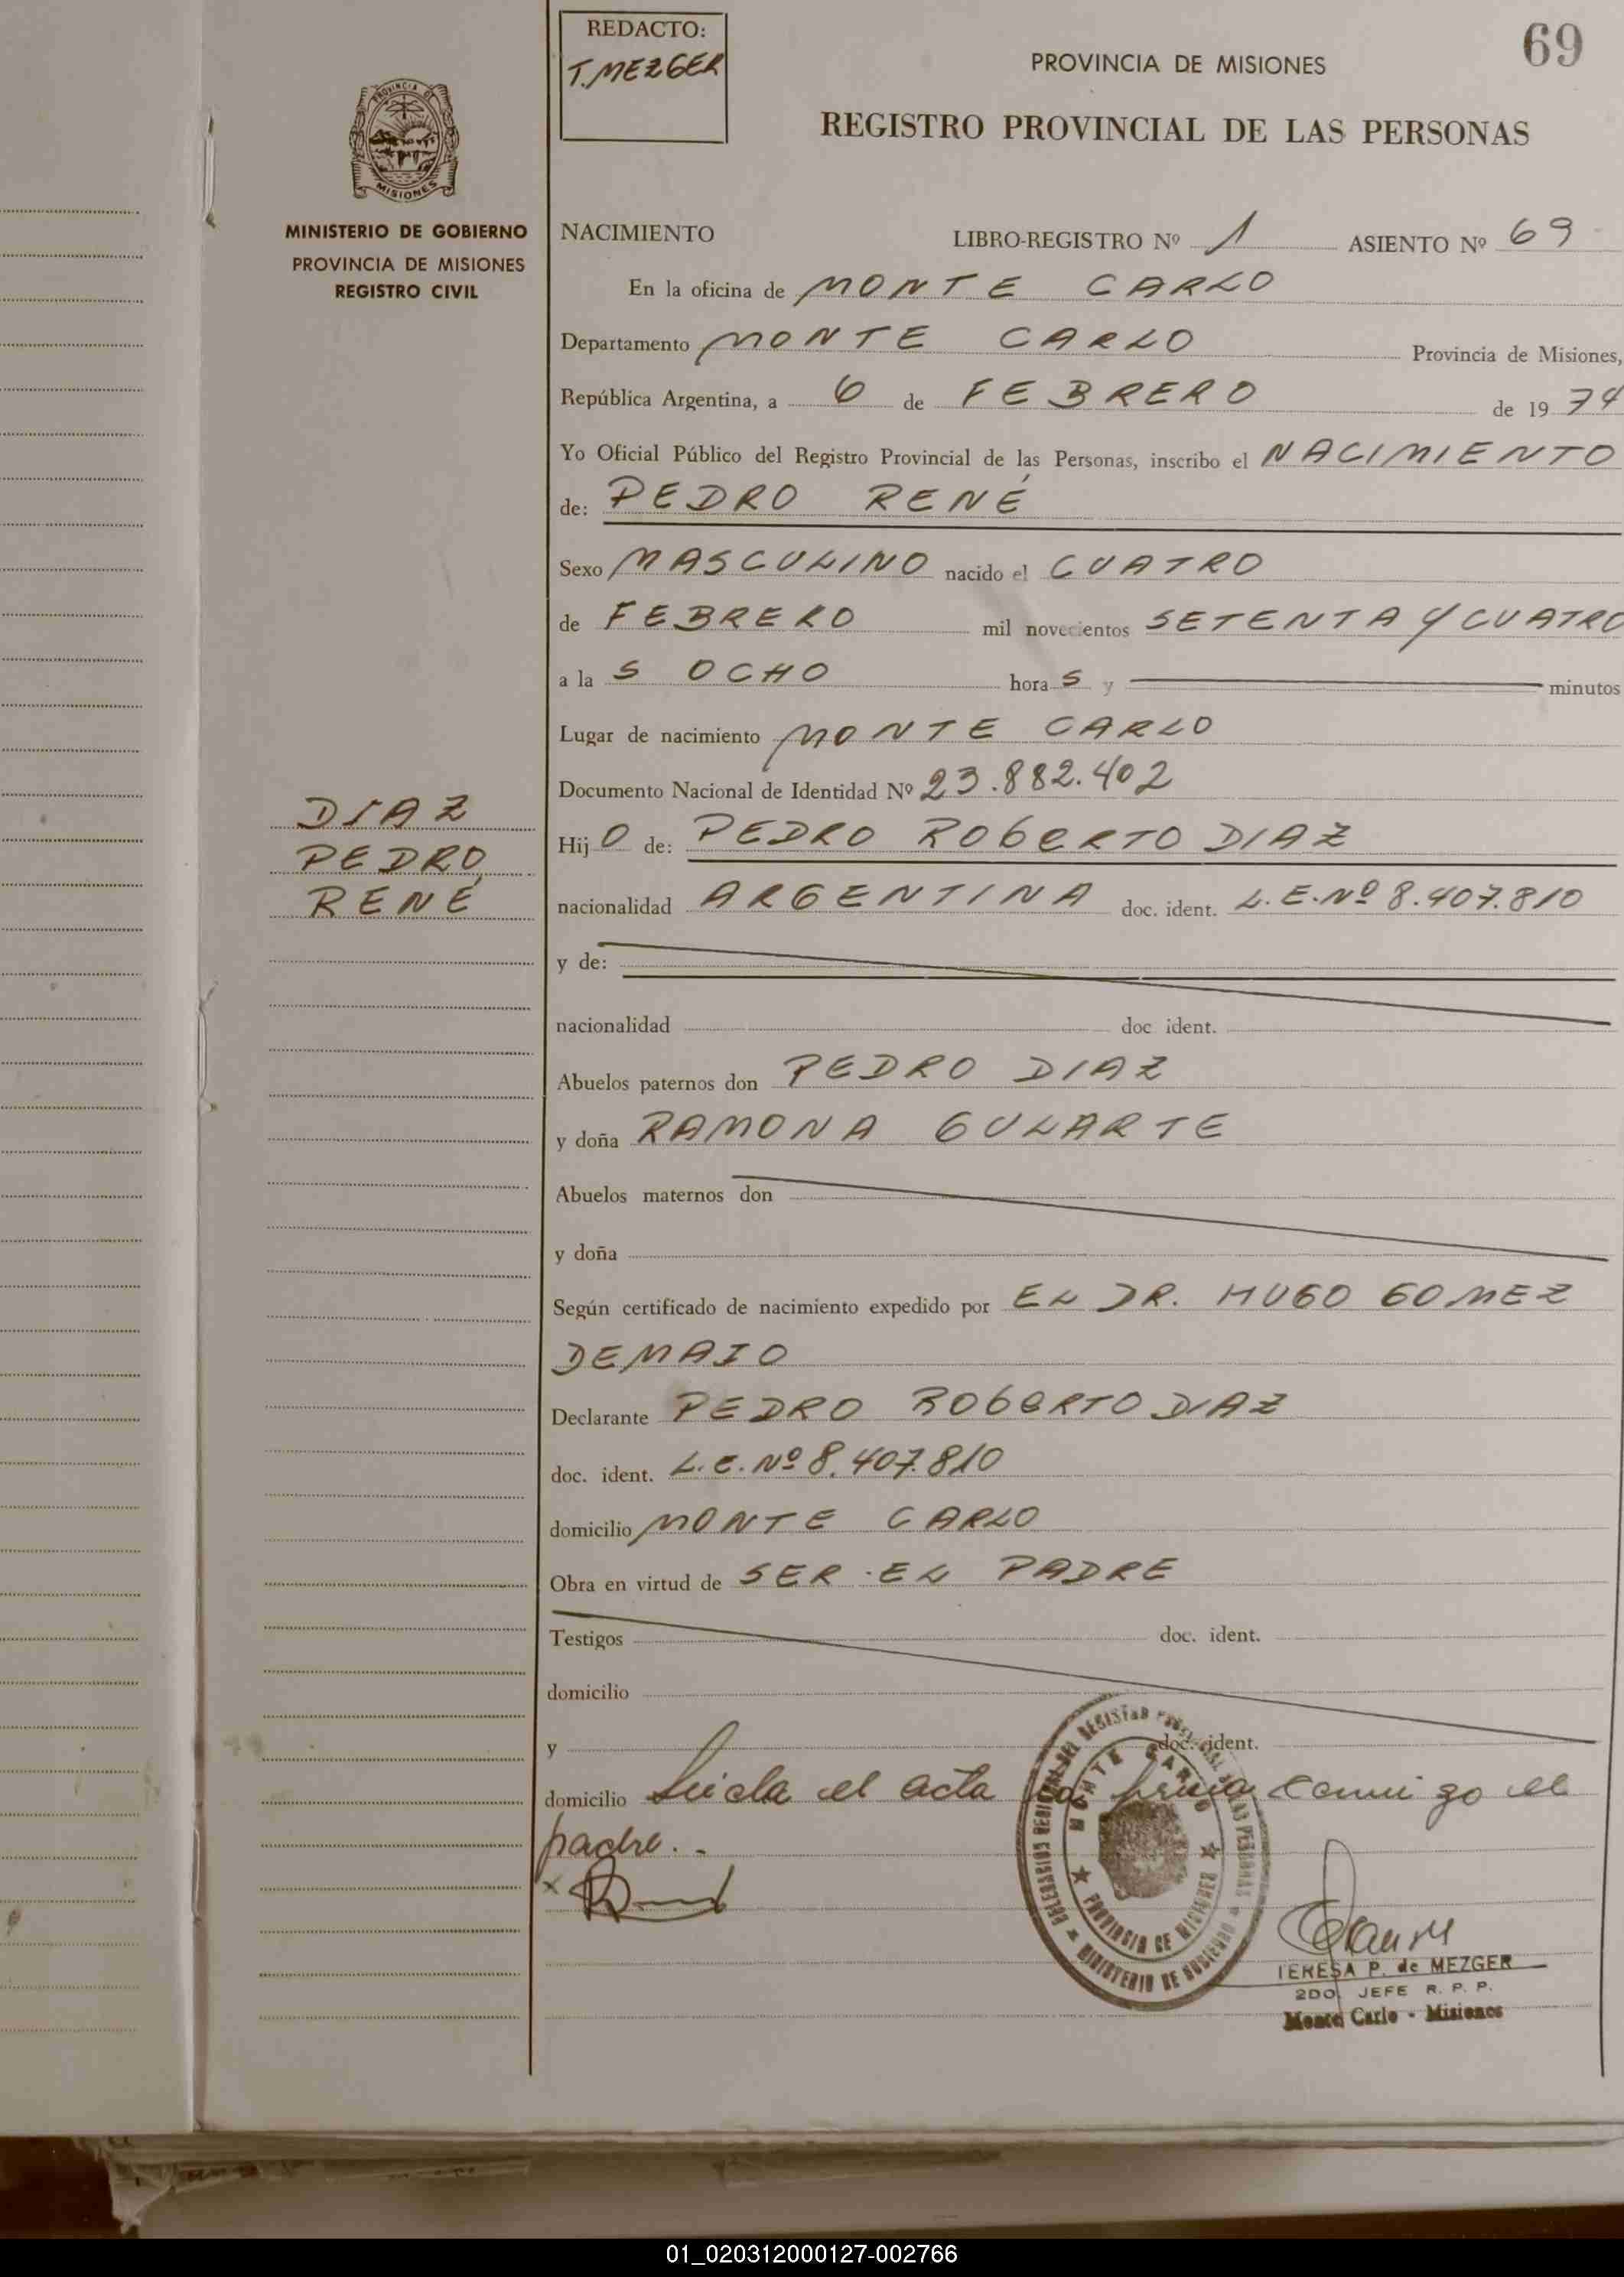 REDACTO:
T. MEZGER
69
PROVINCIA DE MISIONES
REGISTRO PROVINCIAL DE LAS PERSONAS
PROVINCIA DE
MISIONES
MINISTERIO DE GOBIERNO
PROVINCIA DE MISIONES
REGISTRO CIVIL
NACIMIENTO LIBRO-REGISTRO Nº 1 ASIENTO Nº 69
En la oficina de MONTE CARLO
Departamento MONTE CARLO Provincia de Misiones,
República Argentina, a 6 de FEBRERO de 1974
Yo Oficial Público del Registro Provincial de las Personas, inscribo el NACIMIENTO
de: PEDRO RENÉ
Sexo MASCULINO nacido el CUATRO
de FEBRERO mil novecientos SETENTA Y CUATRO
a la S OCHO hora S y minutos
Lugar de nacimiento MONTE CARLO
Documento Nacional de Identidad Nº 23.882.402
DIAZ
PEDRO
RENÉ
Hij O de: PEDRO ROBERTO DIAZ
nacionalidad ARGENTINA doc. ident. L.E.Nº 8.407.810
y de:
nacionalidad doc ident.
Abuelos paternos don PEDRO DIAZ
y doña RAMONA GULARTE
Abuelos maternos don
y doña
Según certificado de nacimiento expedido por EL DR. HUGO GOMEZ
DEMAIO
Declarante PEDRO ROBERTO DIAZ
doc. ident. L.E.Nº 8.407.810
domicilio MONTE CARLO
Obra en virtud de SER EL PADRE
Testigos doc. ident.
domicilio
y doc. ident.
domicilio Leida el acta la firma conmigo el
padre. -
x
MONTE CARLO
PROVINCIA DE MISIONES
MINISTERIO DE GOBIERNO
TERESA P. de MEZGER
2DO. JEFE R. P. P.
Monte Carlo - Misiones
01_020312000127-002766